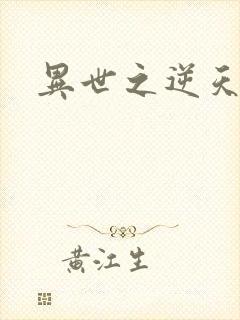 異世之逆天
黃江生